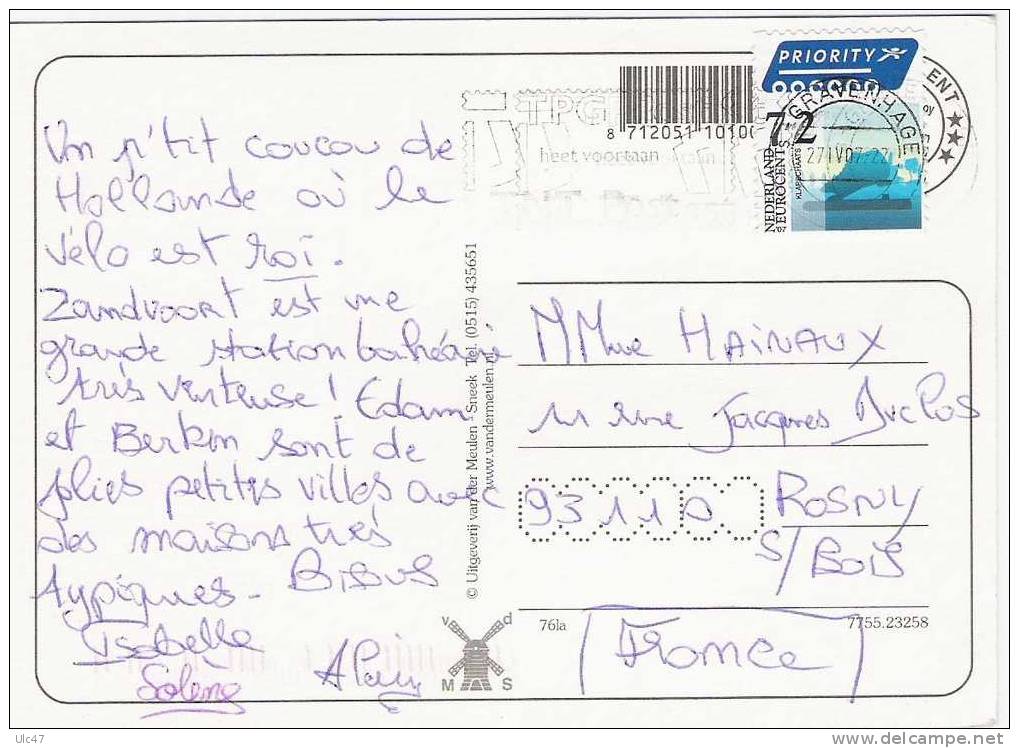 PRIORITY
GRAVENHAGE
27 IV 07-22
ENT ★★★
TPG
heet voortaan
8 712051 10100
72
NEDERLAND
EUROCENTS
KLAPSCHAATS
'07
Un p'tit coucou de
Hollande où le
vélo est roi.
Zandvoort est une
grande station balnéaire
très venteuse ! Edam
et Berken sont de
jolies petites villes avec
des maisons très
typiques - Bisous
Isabelle
Solene
Alain
© Uitgeverij van der Meulen - Sneek Tel. (0515) 435651
www.vandermeulen.nl
v d
M S
MMme HAINAUX
11 rue Jacques Duclos
93110 ROSNY
S/BOIS
France
761a
7755.23258
Ulc47
delcampe.net